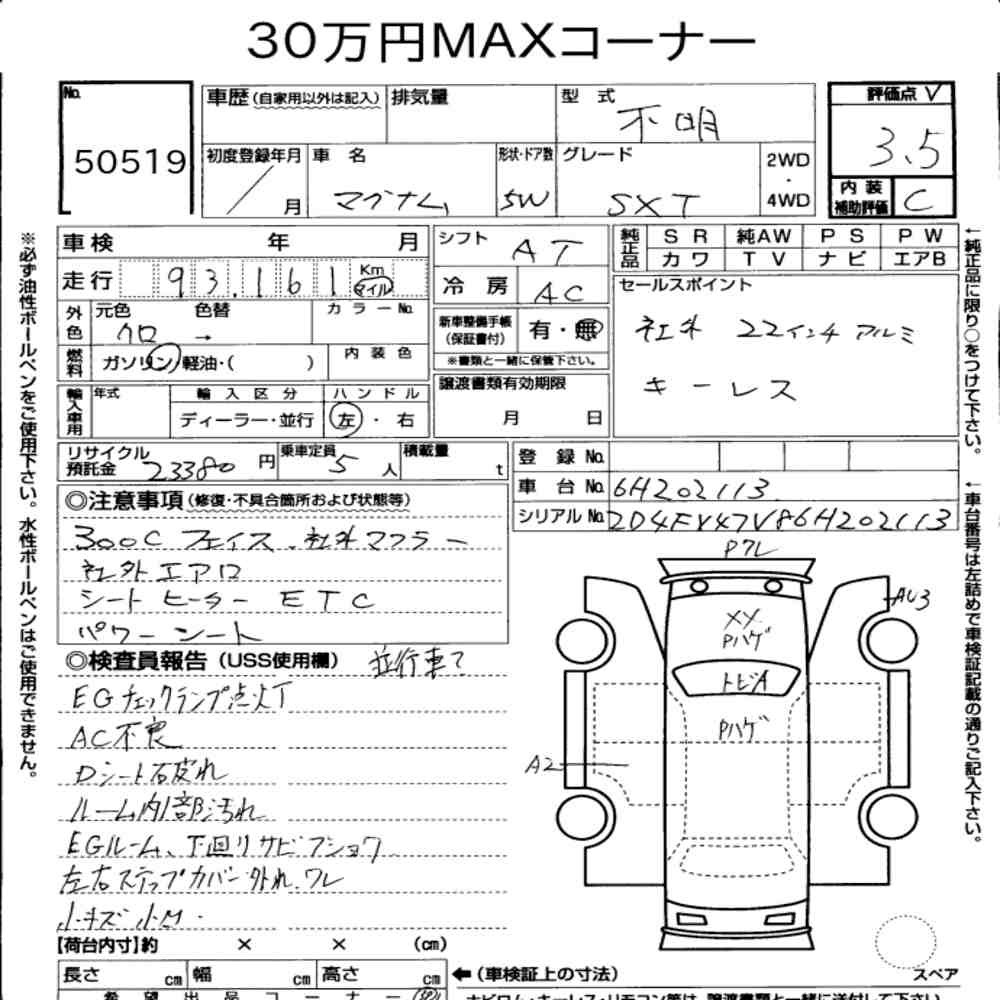 30万円MAXコーナー
No. 50519
車歴(自家用以外は記入) 排気量 型式 不明
評価点 3.5
初度登録年月 / 月 車名 マグナム 形状・ドア数 5W グレード SXT 2WD・4WD
内装補助評価 C
車検 年 月 シフト AT
純正品 SR 純AW PS PW
カワ TV ナビ エアB
走行 93,161 Km マイル 冷房 AC
セールスポイント
社外 22インチアルミ
キーレス
外色 元色 クロ → 色替 カラーNo.
新車整備手帳(保証書付) 有・無
※書類と一緒に保管下さい。
燃料 ガソリン 軽油・( ) 内装色
譲渡書類有効期限 月 日
輸入車用 年式 輸入区分 ディーラー・並行 ハンドル 左・右
リサイクル預託金 23380円 乗車定員 5人 積載量 t
登録No.
車台No. 6H202113
シリアルNo. 2D4FV47V86H202113
◎注意事項(修復・不具合箇所および状態等)
300C フェイス、社外マフラー
社外エアロ
シートヒーター ETC
パワーシート
◎検査員報告(USS使用欄) 並行車て
EGチェックランプ点灯
AC不良
Dシート石皮れ
ルーム内部汚れ
EGルーム、下回リサビフショク
左右ステップカバー外れ、ワレ
小キズ小凹・
Pワレ
XX
Pハゲ
トビA
Pハゲ
AU3
A2
【荷台内寸】約 × × (cm)
長さ cm 幅 cm 高さ cm
←(車検証上の寸法)
スペア
希望出品コーナー
※必ず油性ボールペンをご使用下さい。水性ボールペンはご使用できません。
←純正品に限り○をつけて下さい。
←車台番号は左詰めで車検証記載の通りご記入下さい。